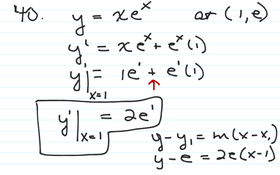 40. y = xeˣ at (1, e)
y' = xeˣ + eˣ(1)
y'|ₓ₌₁ = 1e' + e'(1)
y'|ₓ₌₁ = 2e'
y - y₁ = m(x - x₁)
y - e = 2e(x - 1)